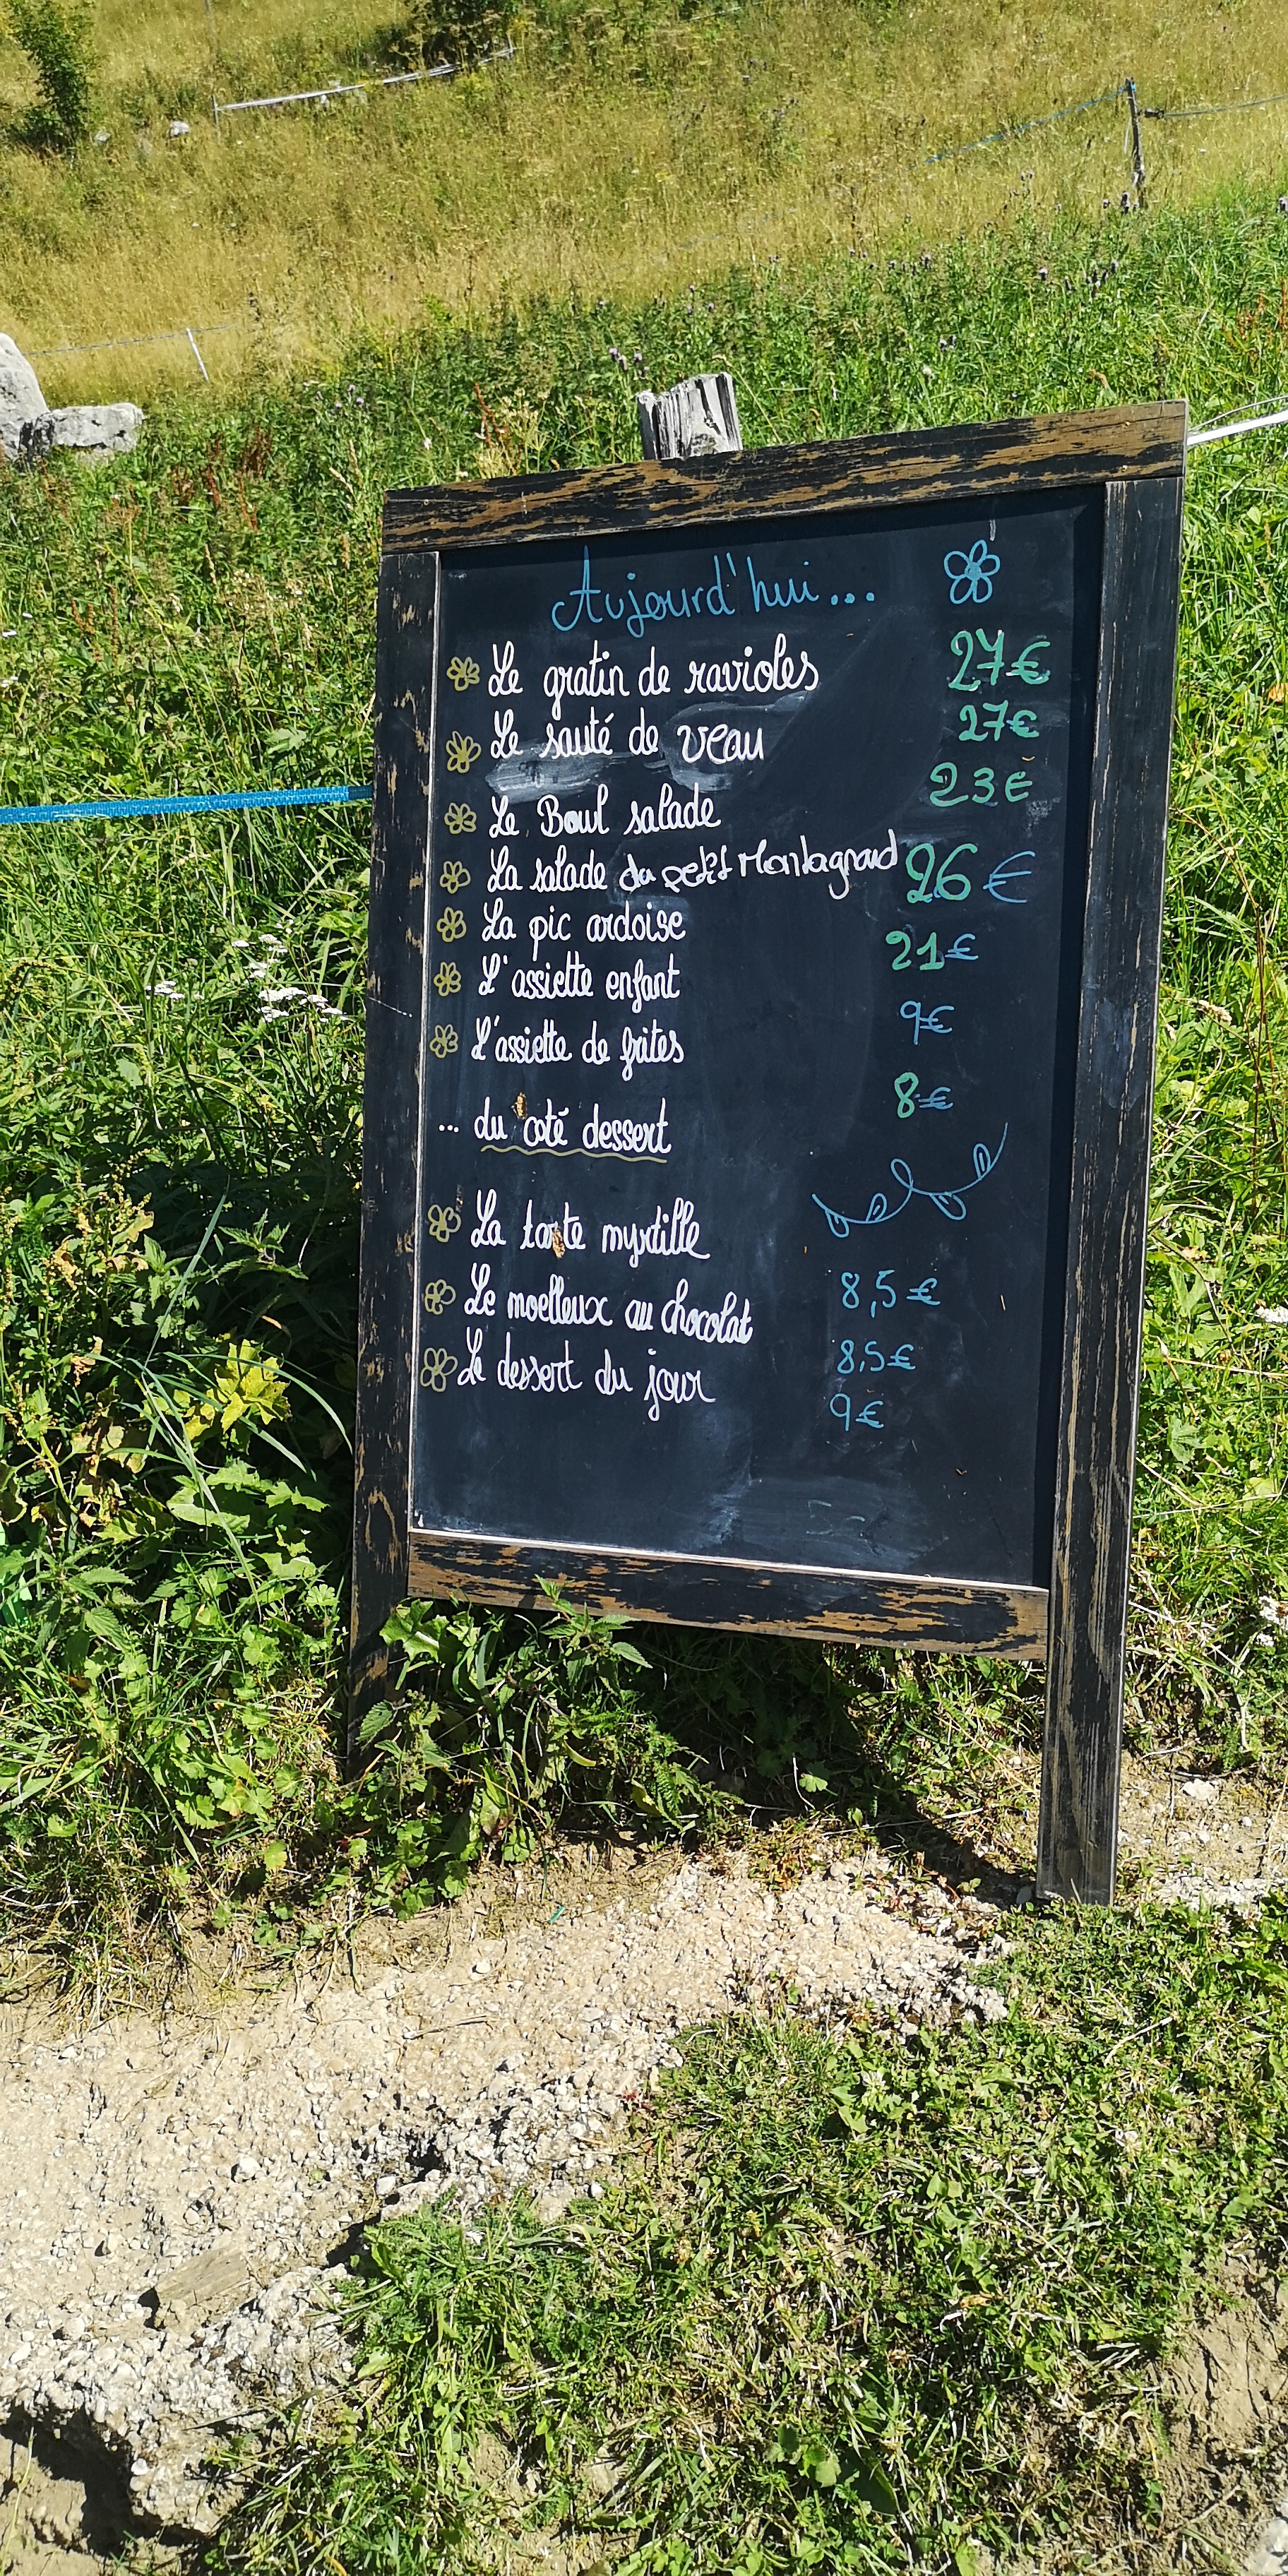 Aujourd'hui...
Le gratin de ravioles 27€
Le sauté de veau 27€
Le Bowl salade 23€
La salade du petit Montagnard 26€
La pic ardoise 21€
L'assiette enfant 9€
L'assiette de frites 8€
... du coté dessert
La tarte myrtille 8,5€
Le moelleux au chocolat 8,5€
Le dessert du jour 9€